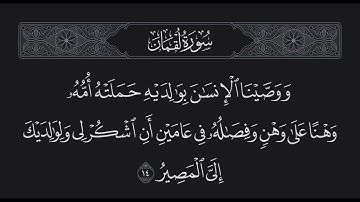 سُورَةُ لُقْمَانَ
وَوَصَّيْنَا ٱلْإِنسَٰنَ بِوَٰلِدَيْهِ حَمَلَتْهُ أُمُّهُۥ
وَهْنًا عَلَىٰ وَهْنٍ وَفِصَٰلُهُۥ فِى عَامَيْنِ أَنِ ٱشْكُرْ لِى وَلِوَٰلِدَيْكَ
إِلَىَّ ٱلْمَصِيرُ ١٤